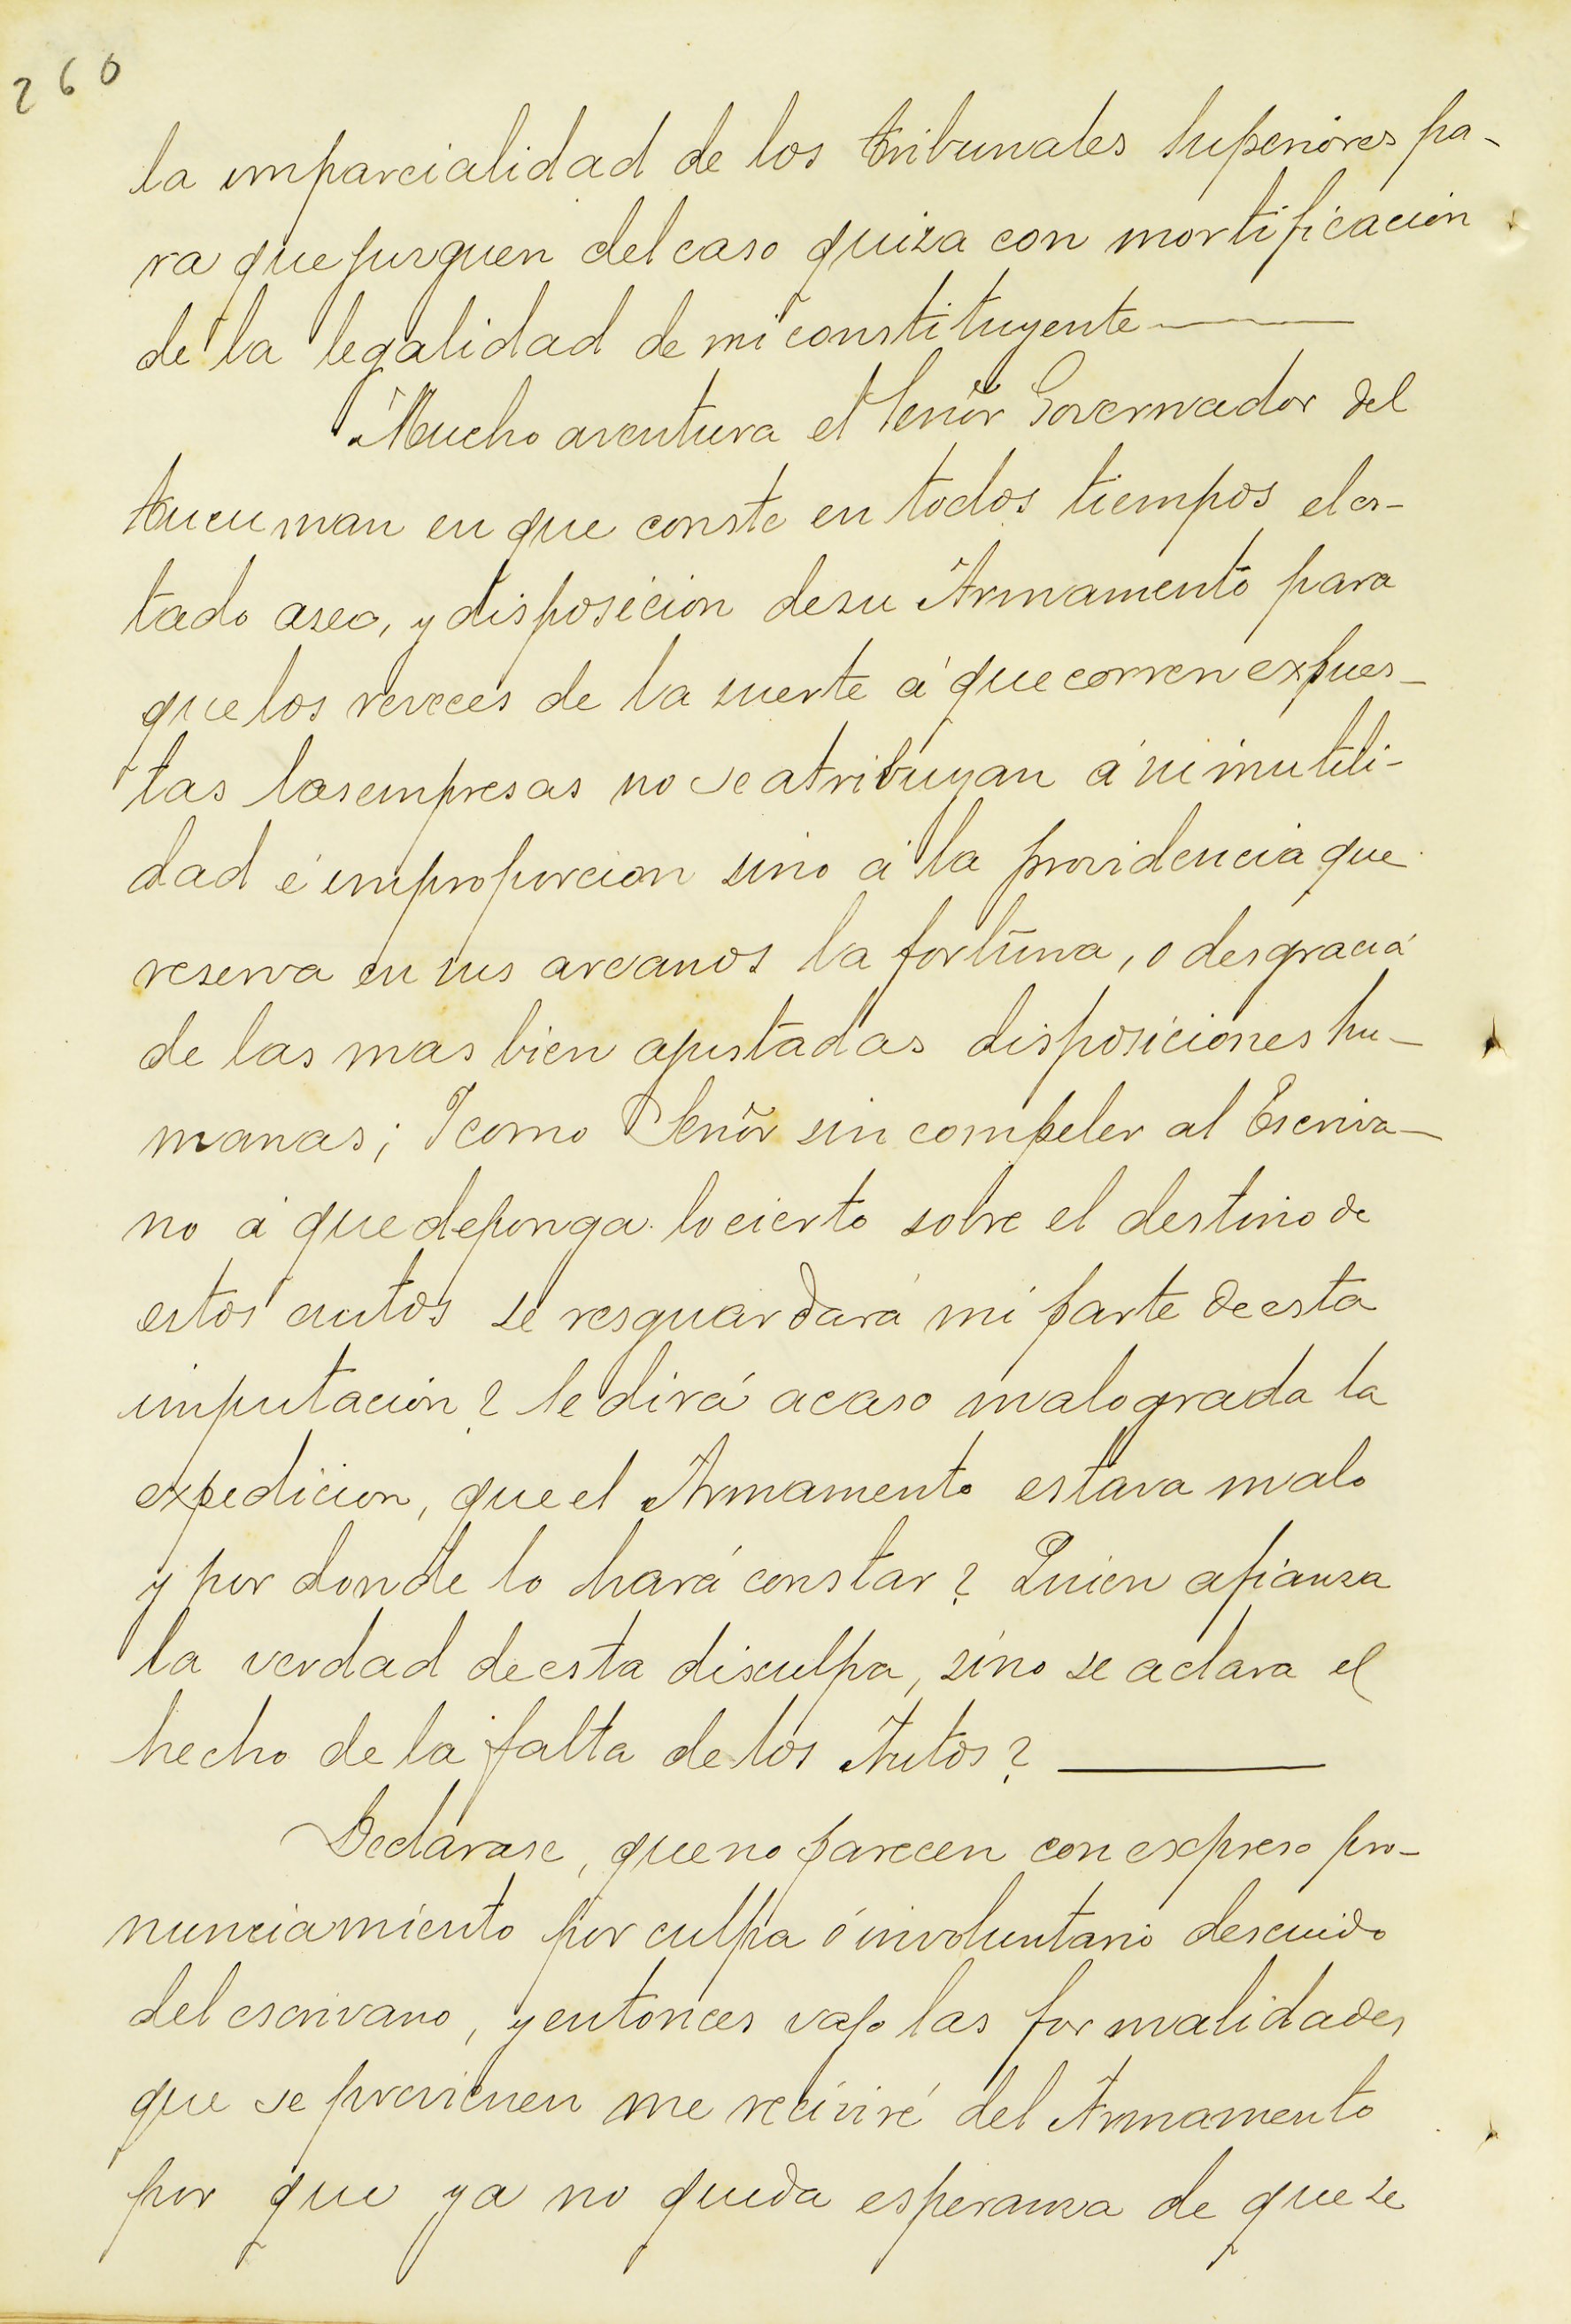 260
la imparcialidad de los tribunales Superiores pa-
ra que jusguen del caso quiza con mortificacion
de la legalidad de mi constituyente
Mucho aventura el Señor Governador del
tucuman en que conste en todos tiempos el es-
tado aseo, y disposicion de su Armamento para
que los reveces de la suerte á que corren expues-
tas las empresas no se atribuyan á su inutili-
dad é improporcion sino á la providencia que
reserva en sus arcanos la fortuna, o desgracia
de las mas bien ajustadas disposiciones hu-
manas; I como Señor sin compeler al Escriva-
no á que deponga lo cierto sobre el destino de
estos autos se resguardará mi parte de esta
imputacion? Se dirá acaso malograda la
expedicion, que el Armamento estava malo
y por donde lo hará constar? Quien afianza
la verdad de esta disculpa, sino se aclara el
hecho de la falta de los Autos?
Declarase, que no parecen con expreso pro-
nunciamiento por culpa ó involuntario descuido
del escrivano, y entonces vajo las formalidades
que se previenen me reciviré del Armamento
por que ya no queda esperanza de que se